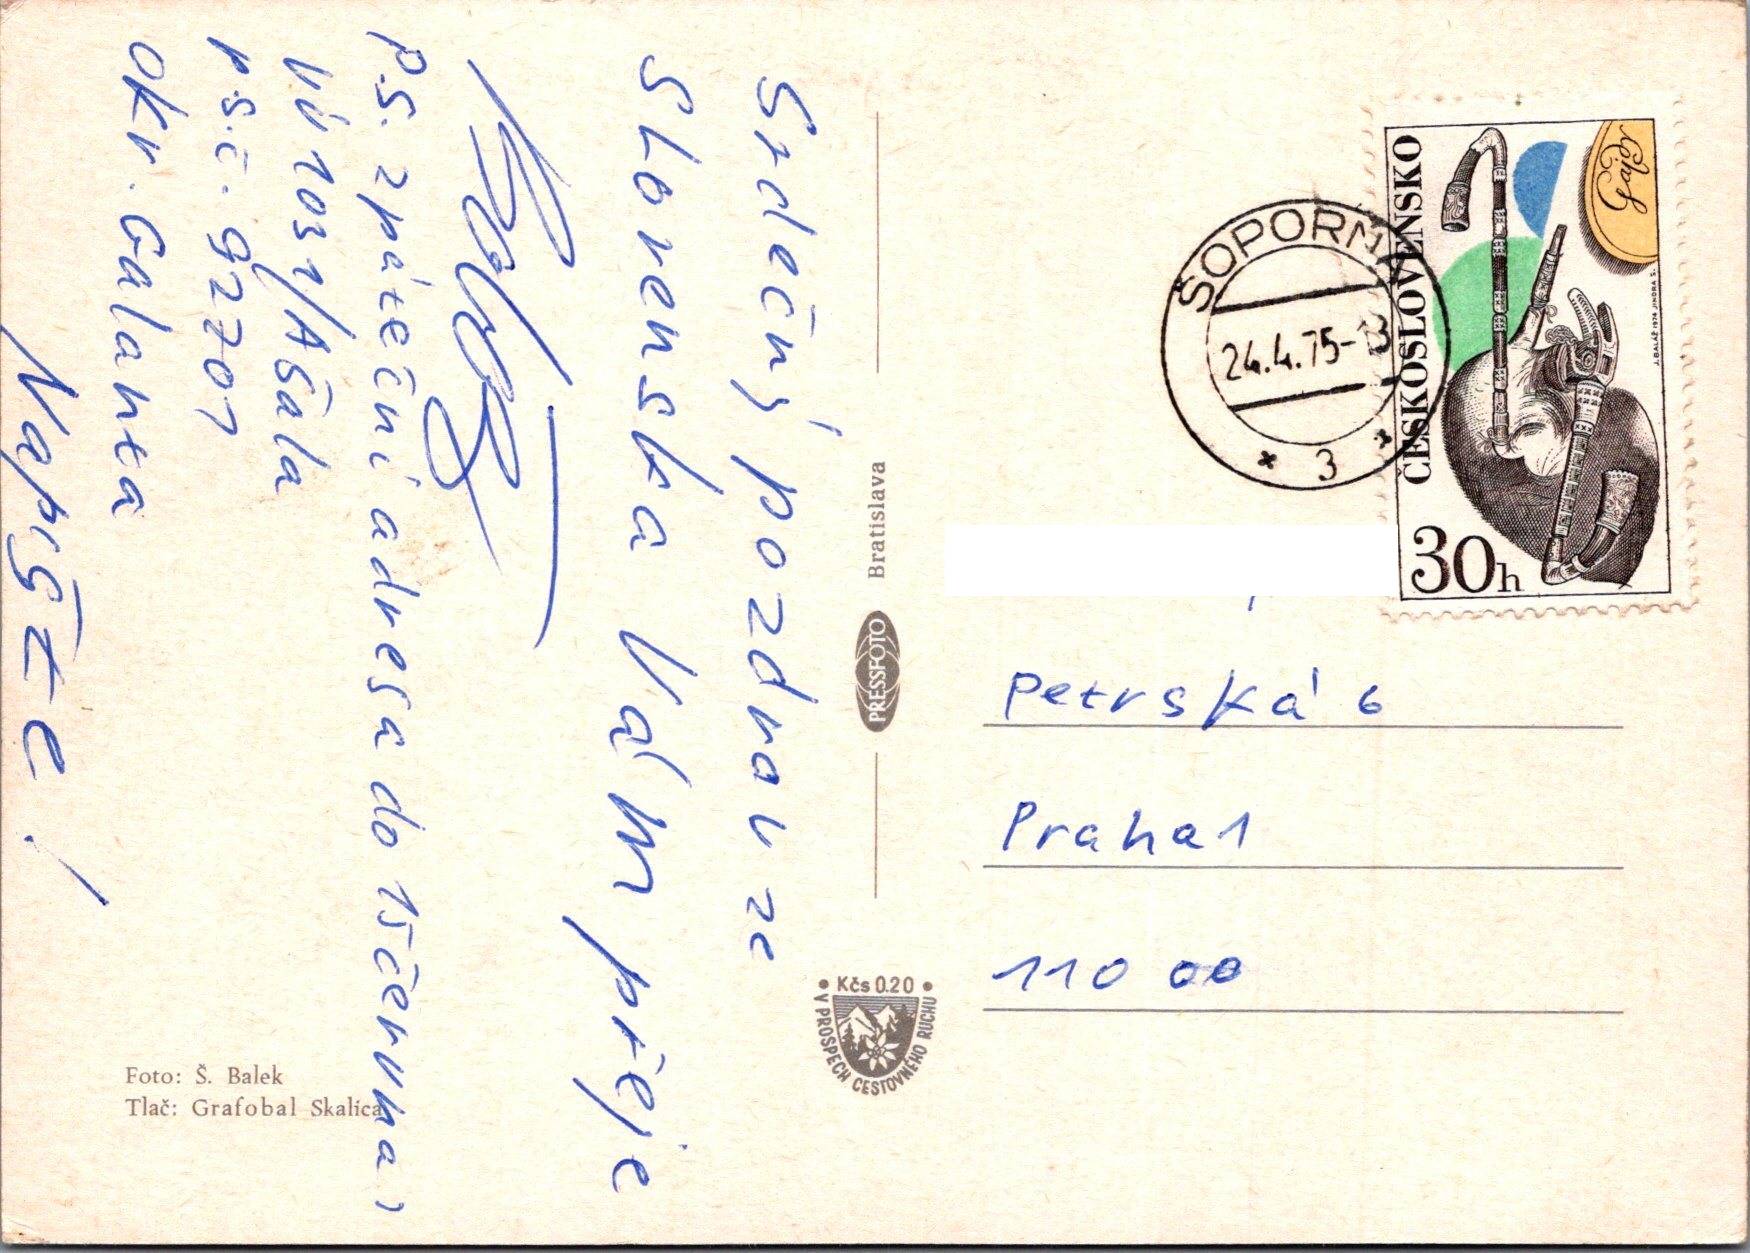 Srdečný pozdrav ze
Slovenska Vám přeje
P.S. zpáteční adresa do 15 června:
VÚ 1031/A Šala
P.S.Č. 92701
okr. Galanta
Napište!
Bratislava
PRESSFOTO
Kčs 0.20
V PROSPECH CESTOVNÉHO RUCHU
Foto: Š. Balek
Tlač: Grafobal Skalica
ČESKOSLOVENSKO
Gajdy
30h
J. BALÁŽ 1974 JINDRA S.
ŠOPORŇA
24.4.75-13
3
Petrská 6
Praha 1
110 00